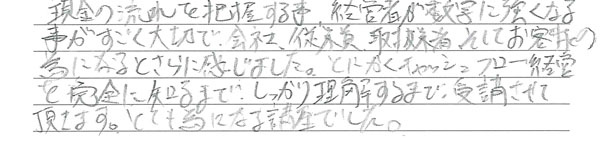 現金の流れを把握する事、経営者が数字に強くなる
事がすごく大切で、会社、従業員、取引業者、そしてお客様の
為になるとさらに感じました。とにかくキャッシュフロー経営
を完全に知るまで、しっかり理解するまで、受講させて
頂きます。とても為になる講座でした。